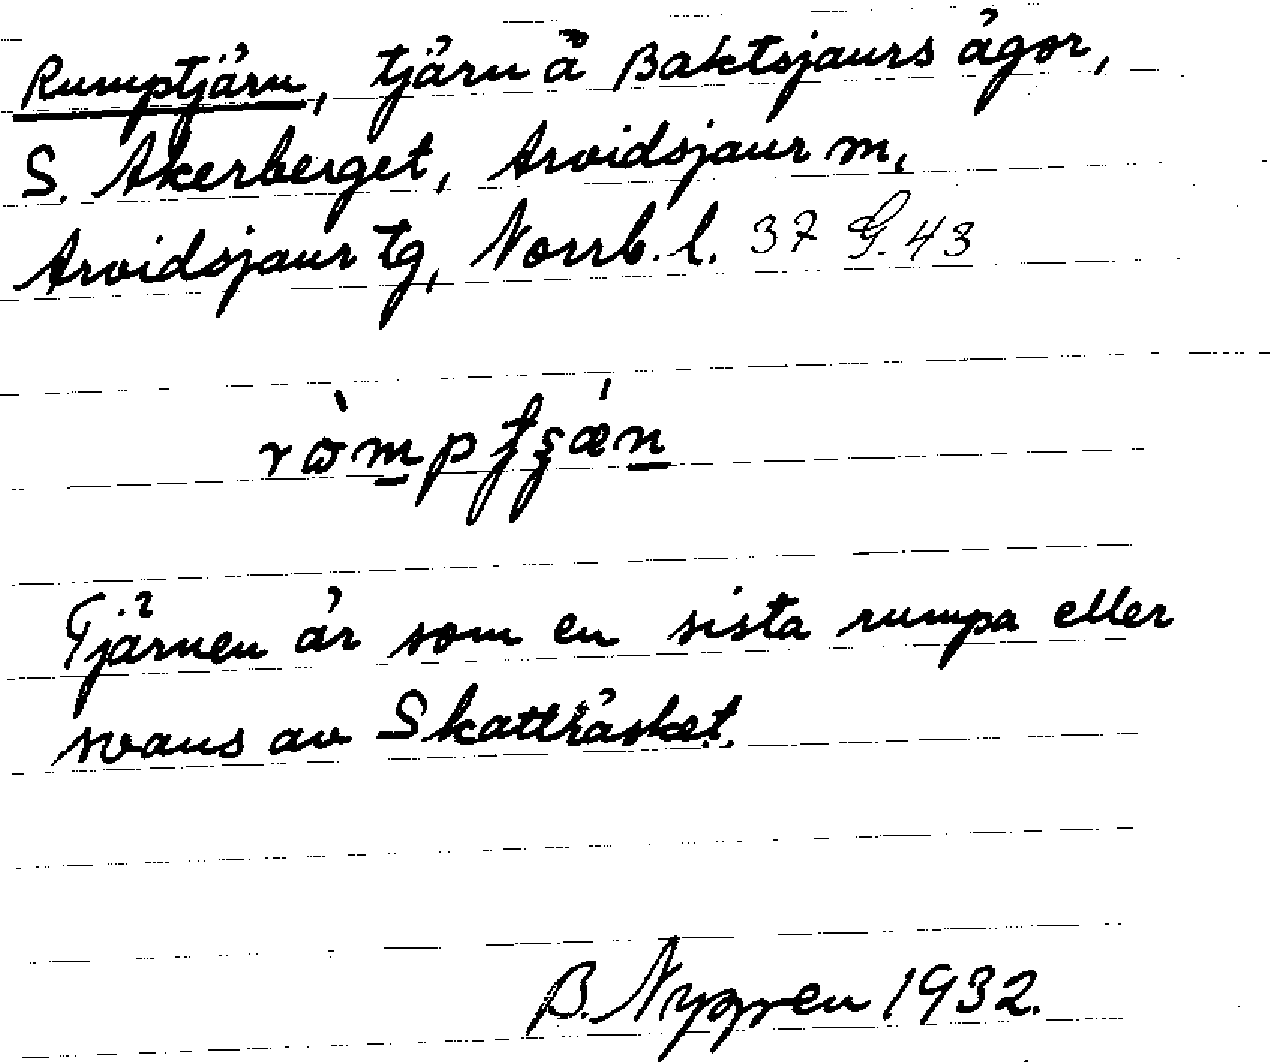 Rumptjärn, tjärn å Baktsjaurs ägor,
S. Åkerberget, Arvidsjaur m,
Arvidsjaur tg, Norrb. l. 37 G. 43
Tjärnen är som en sista rumpa eller
svans av Skatträsket.
B. Nygren 1932.